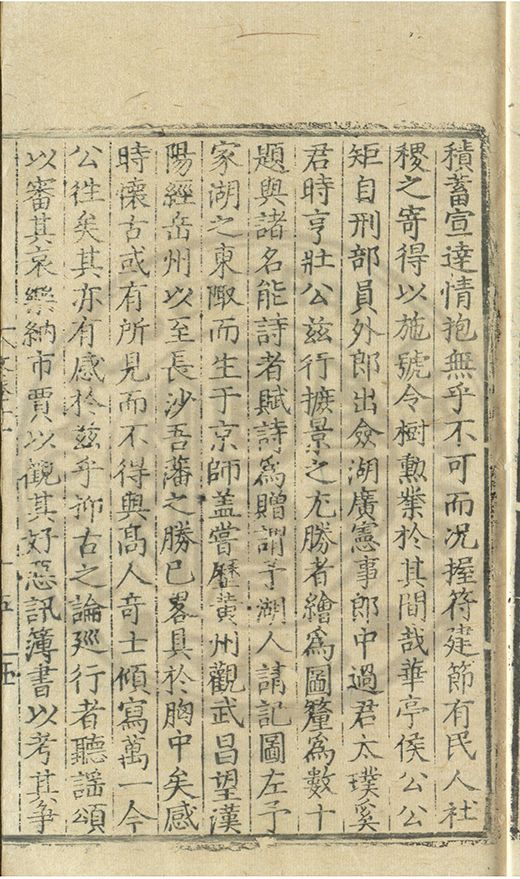 積蓄宣達情抱無乎不可而況握符建節有民人社
稷之寄得以施號令樹勲業於其間哉華亭侯公公
矩自刑部員外郎出僉湖廣憲事郎中過君太璞奚
君時亨壯公兹行摭景之尤勝者繪爲圖釐爲數十
題與諸名能詩者賦詩爲贈謂予湖人請記圖左予
家湖之東陬而生于京師盖嘗歷黄州觀武昌望漢
陽經岳州以至長沙吾藩之勝已畧具於胸中矣感
時懷古或有所見而不得與髙人竒士傾寫萬一今
公徃矣其亦有感於兹乎抑古之論廵行者聽謡頌
以審其哀樂納市賈以觀其好惡訊簿書以考其爭